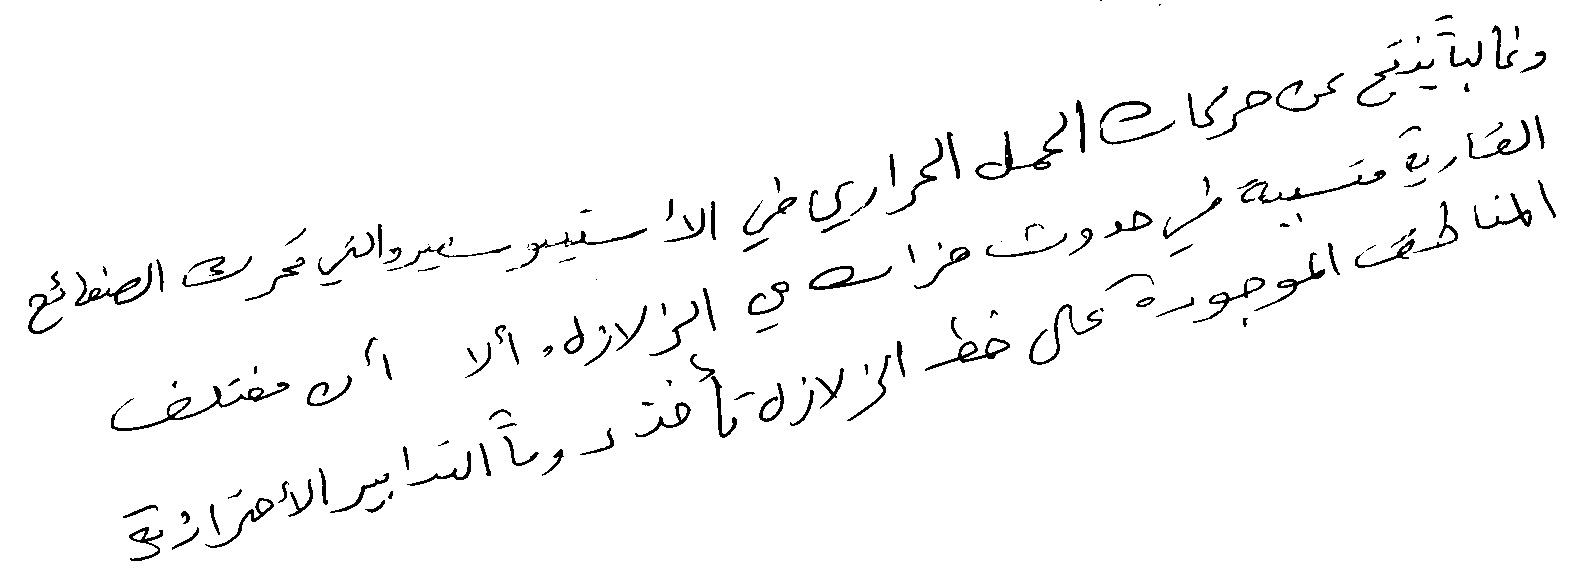 وغالباً ينتج عن حركات الحمل الحراري في الأستينوسفير والتي تحرك الصفائح
القارية متسببة في حدوث هزات في الزلازل، ألا أن مختلف
المناطق الموجودة على خط الزلازل تأخذ دوماً التدابير الأحترازية